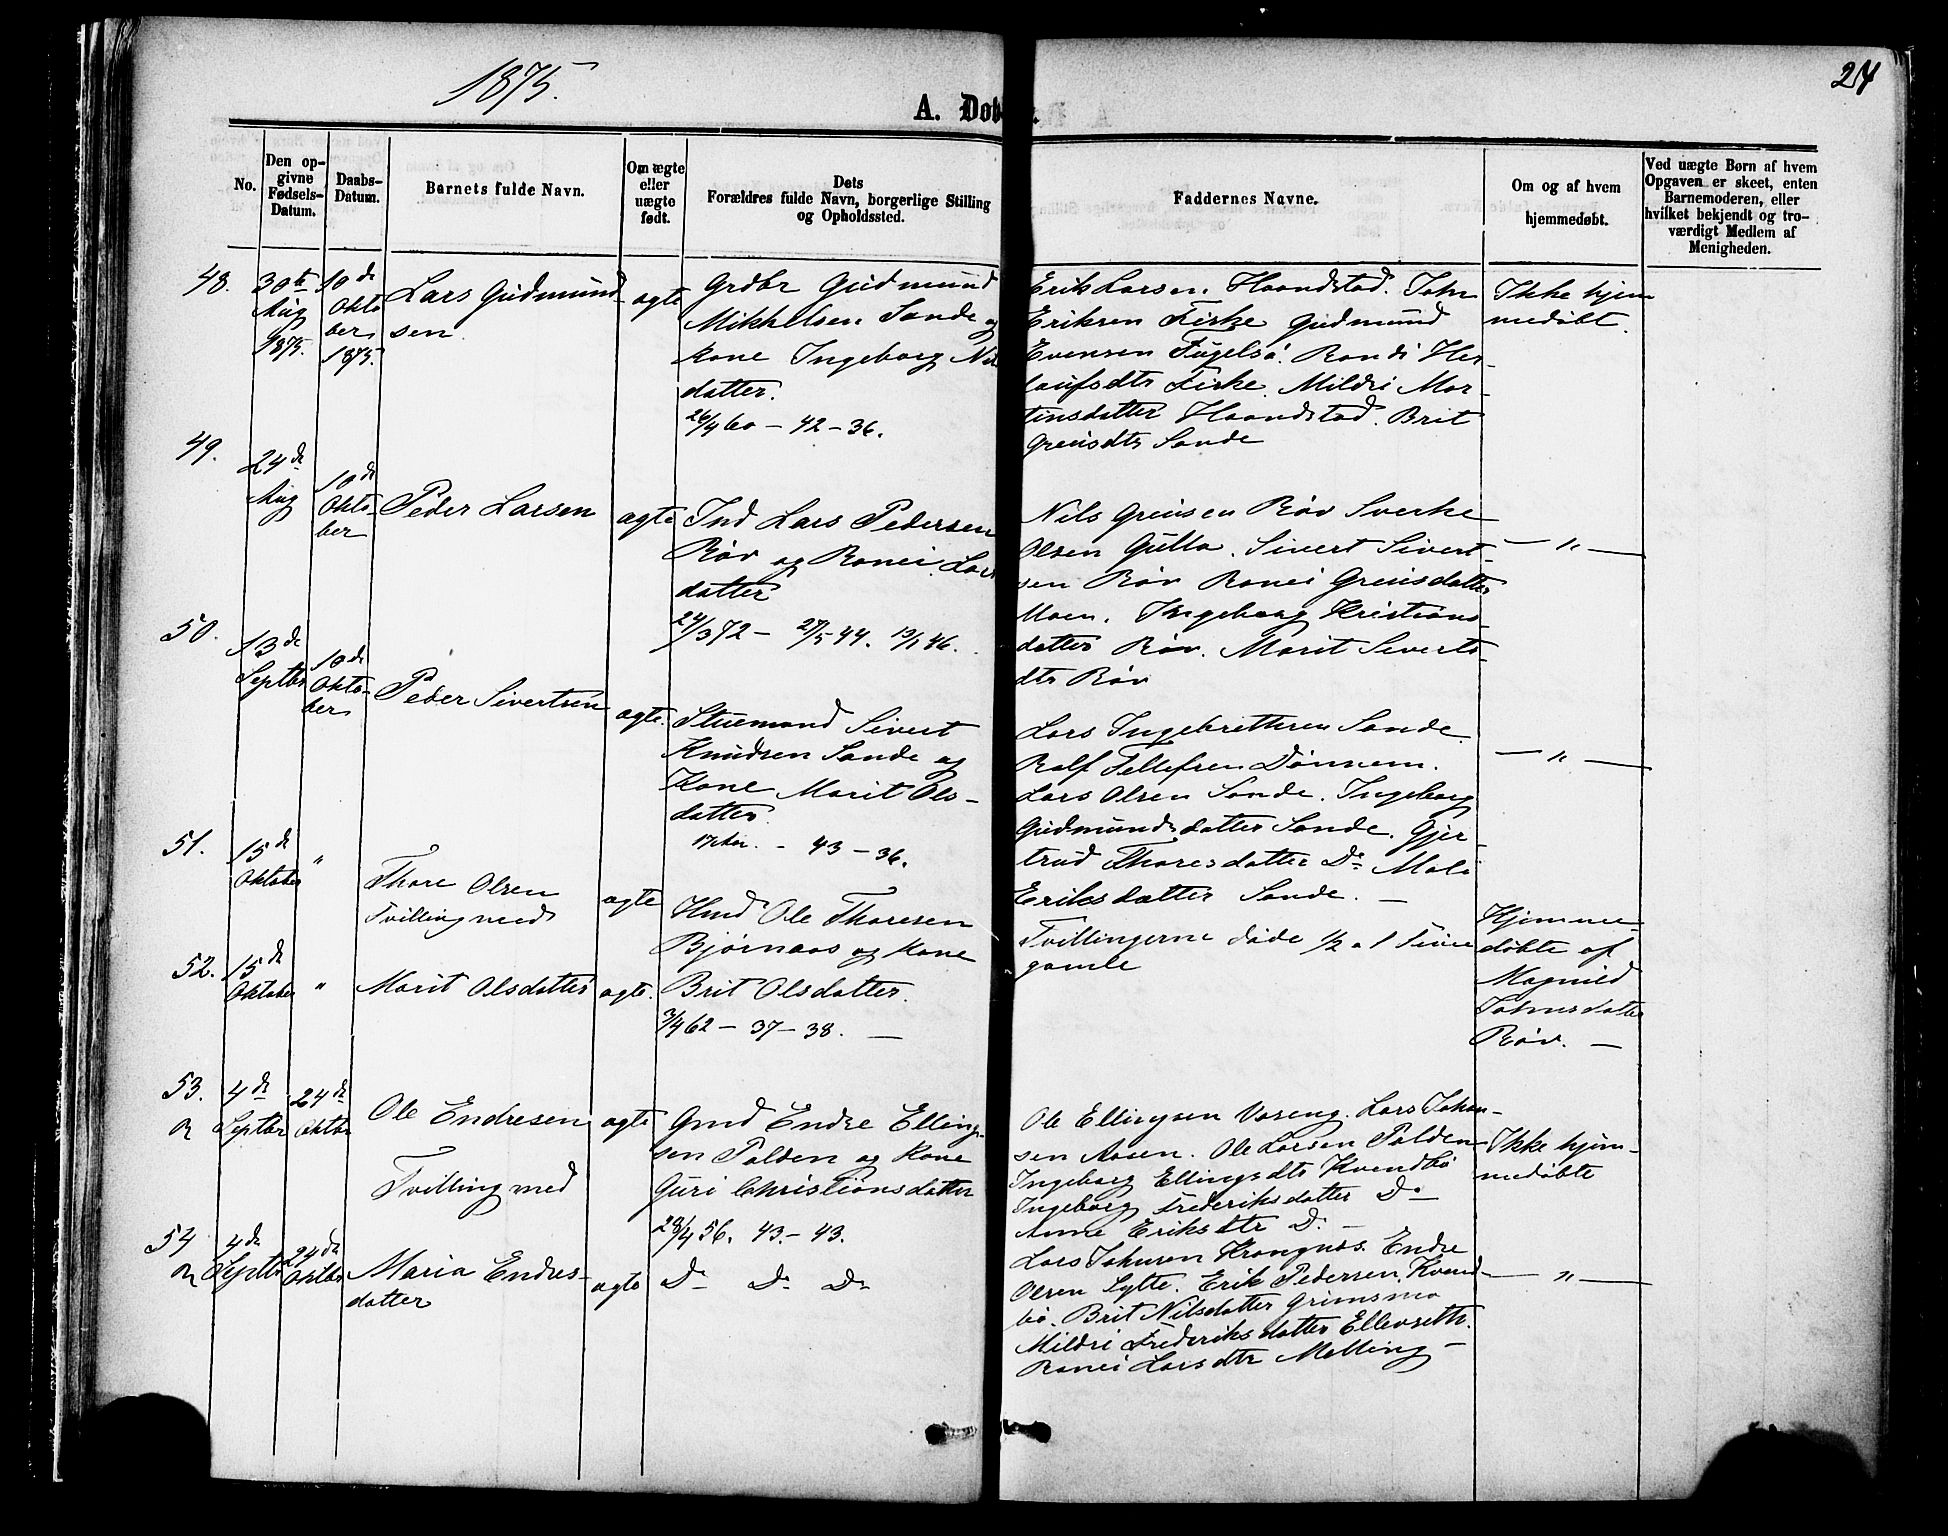 1875.
24
A. Døbte.
No.
Den op-
givne
Fødsels-
Datum.
Daabs-
Datum.
Barnets fulde Navn.
Om ægte
eller
uægte
født.
Dets
Forældres fulde Navn, borgerlige Stilling
og Opholdssted.
Faddernes Navne.
Om og af hvem
hjemmedøbt.
Ved uægte Børn af hvem
Opgaven er skeet, enten
Barnemoderen, eller
hvilket bekjendt og tro-
værdigt Medlem af
Menigheden.
48.
30te
Aug
1875.
10de
Okto
ber
1875.
Lars Gudmund-
sen.
ægte
Grdbr Gudmund
Mikkelsen Sande og
kone Ingeborg Nils
datter.
26/4 60 – 42 – 36.
Erik Larsen Haandstad. John
Eriksen Firke Gudmund
Evensen Fugelsø. Randi Her-
laufsdtr Firke. Mildri Mar-
tinsdatter Haandstad. Brit
Greisdtr Sande
Ikke hjem
medøbt.
49.
24de
Aug
10de
Okto-
ber
Peder Larsen
ægte
Ind Lars Pedersen
Røv og Ranei Lars
datter
24/3 72 – 27/5 44. 13/1 46.
Nils Greisen Røv Sverke
Olsen Gulla. Sivert Sivert-
sen Røv Ranei Greisdatter
Moen. Ingeborg Kristians-
datter Røv. Marit Siverts-
dtr Røv
— „ —
50.
13de
Septbr
10de
Okto-
ber
Peder Sivertsen
ægte.
Stuemand Sivert
Knudsen Sande og
Kone Marit Ols-
datter.
– 43 – 36.
Lars Ingebrittsen Sande.
Ralf Tellefsen Dønnem.
Lars Olsen Sande. Ingeborg
Gudmundsdatter Sande. Gjer-
trud Thoresdatter Do Mali
Eriksdatter Sande. —
— „ —
51.
15de
Oktober
„
Thore Olsen
Tvilling med
ægte
Hmd Ole Thoresen
Bjørnaas og Kone
Brit Olsdatter.
3/4 62 – 37 – 38. —
Tvillingerne døde 1/2 a 1 Time
gamle
Hjemme-
døbte af
Magnild
Johnsdatter
Røv. —
52.
15de
Oktober
„
Marit Olsdatter
ægte.
53.
4de
Septbr
24de
Oktbr
Ole Endresen
Tvilling med
ægte
Gmd Endre Elling-
sen Talden og Kone
Guri Christiansdatter
28/4 56. 43. – 43.
Ole Ellingsen Vaseng. Lars Johan-
sen Aasen. Ole Larsen Talden
Ingeborg Ellingsdtr Kvendbø
Ingeborg Frederiksdatter Do
Anne Eriksdtr Do —
Ikke hjem-
medøbte
54
4de
Septbr
24de
Oktbr
Maria Endres-
datter
ægte
Do Do Do
Lars Johnsen Krangnæs. Endre
Olsen Sylte. Erik Pedersen Kvend-
bø. Brit Nilsdatter Grimsmo
Mildri Frederiksdatter Ellevseth.
Ranei Larsdtr Melling —
— „ —